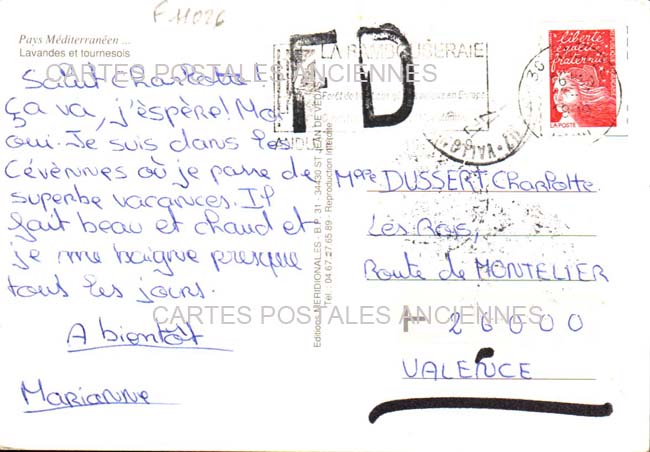 F 11026
Pays Méditerranéen ...
Lavandes et tournesols
Salut Charlotte!
Ça va, j'èspère! Moi
oui. Je suis dans les
Cévènnes où je passe de
superbe vacances. Il
fait beau et chaud et
je me baigne presque
tous les jours.
A bientôt
Marianne
FD
LA BAMBOUSERAIE
en Europe
Editions MERIDIONALES - B.P. 31 - 34430 ST JEAN DE VEDAS
Tél. : 04.67.27.65.89 - Reproduction Interdite
liberté
égalité
fraternité
LA POSTE
Mlle DUSSERT Charlotte
Route de MONTELIER
26000
VALENCE
CARTES POSTALES ANCIENNES
CARTES POSTALES ANCIENNES